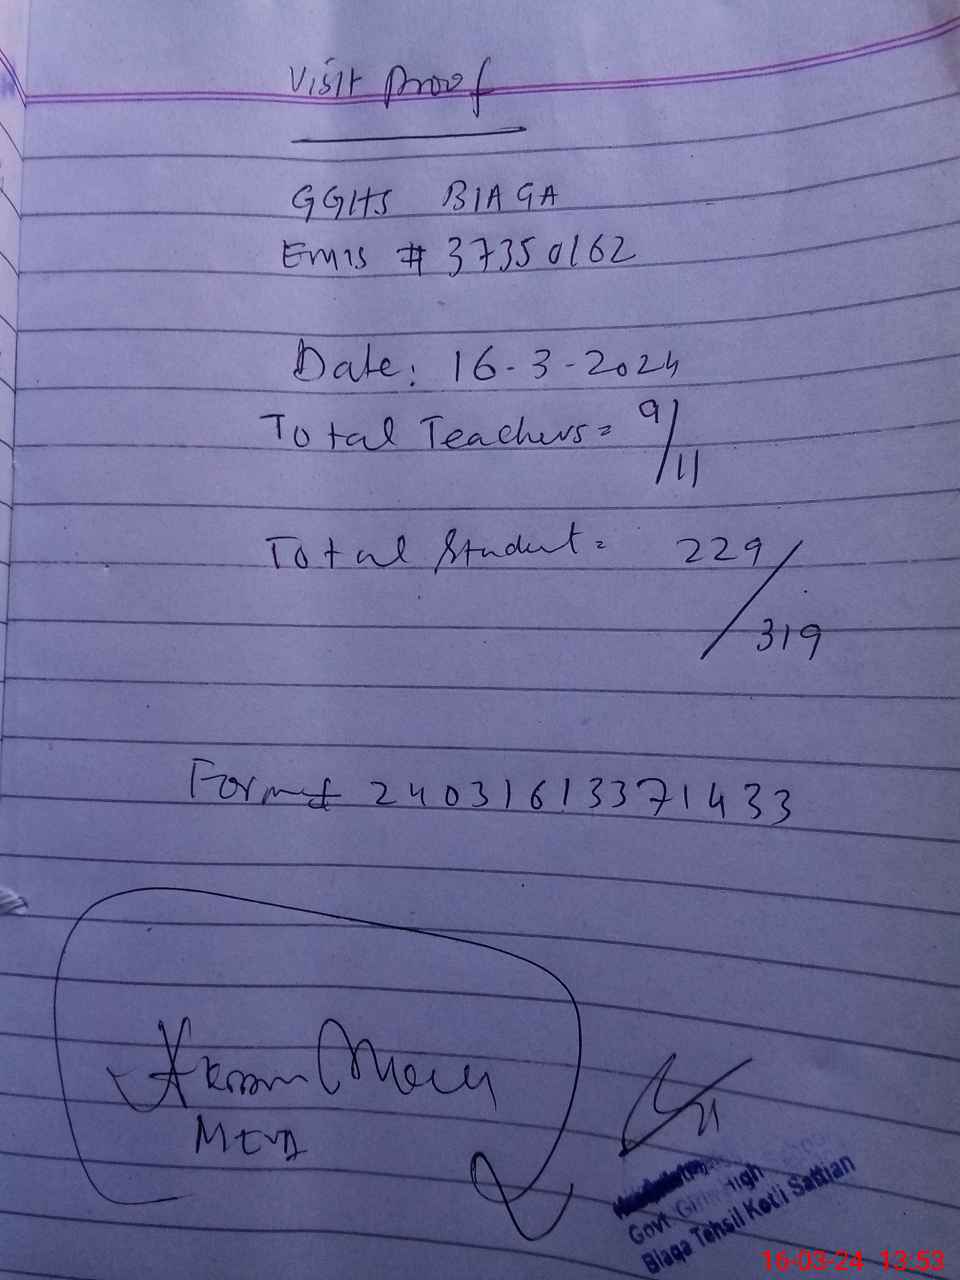 Visit Proof
GGHS BIAGA
Emis # 37350162
Date: 16-3-2024
Total Teachers = 9/11
Total Student = 229/319
Form# 24031613371433
Akram
Govt Girls High
Blaqa Tehsil Kotli Sattian
16-03-24 13:53